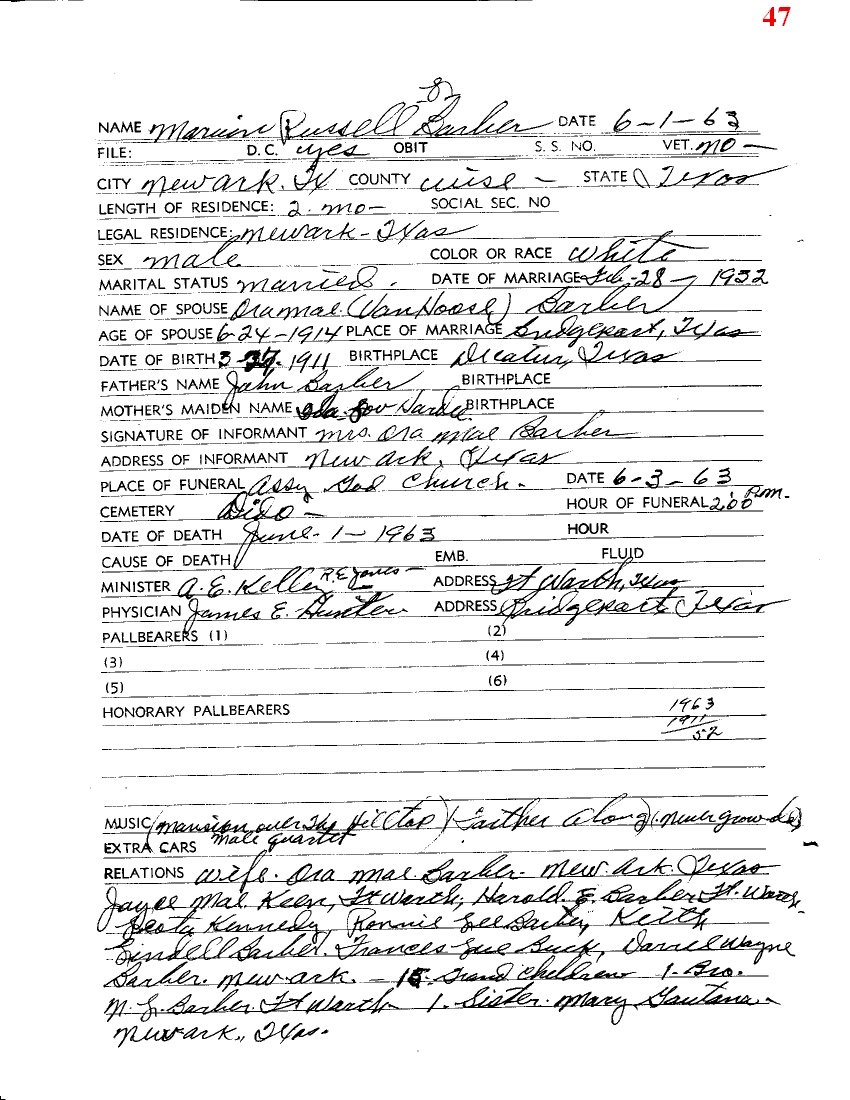 47
NAME Marion Russell Barber DATE 6-1-63
FILE: D.C. yes OBIT S. S. NO. VET. no —
CITY Newark. Tx COUNTY wise — STATE Texas
LENGTH OF RESIDENCE: 2. mo— SOCIAL SEC. NO
LEGAL RESIDENCE: Newark - Texas
SEX male COLOR OR RACE white
MARITAL STATUS married. DATE OF MARRIAGE Feb-28-1932
NAME OF SPOUSE Ora mae (VanHoose) Barber
AGE OF SPOUSE 6-24-1914 PLACE OF MARRIAGE Bridgeport, Texas
DATE OF BIRTH 3 27. 1911 BIRTHPLACE Decatur, Texas
FATHER'S NAME John Barber BIRTHPLACE
MOTHER'S MAIDEN NAME BIRTHPLACE
SIGNATURE OF INFORMANT mrs. Ora mae Barber
ADDRESS OF INFORMANT Newark, Texas
PLACE OF FUNERAL Assy God Church. DATE 6-3-63
CEMETERY Dido — HOUR OF FUNERAL 2:00 P.M.
DATE OF DEATH June-1-1963 HOUR
CAUSE OF DEATH EMB. FLUID
MINISTER A. E. Keller R.E. Jones — ADDRESS Ft Worth, Texas
PHYSICIAN James E. Hunter ADDRESS Bridgeport Texas
PALLBEARERS (1) (2)
(3) (4)
(5) (6)
HONORARY PALLBEARERS 1963
1911
52
MUSIC (mansion over The Hilltop) (Farther Along) (never grow old)
EXTRA CARS male quartet
RELATIONS wife. Ora mae Barber - Newark. Texas
Joyce Mae Keen, Ft Worth, Harold. E. Barber Ft. Worth.
Kennedy, Ronnie Lee Barber, Keith
Lindell Barber. Frances Sue Buck, Darrel Wayne
Barber. Newark. — 15 Grand children 1- Bro.
Barber Ft Worth 1. Sister. Mary
Newark., Texas.